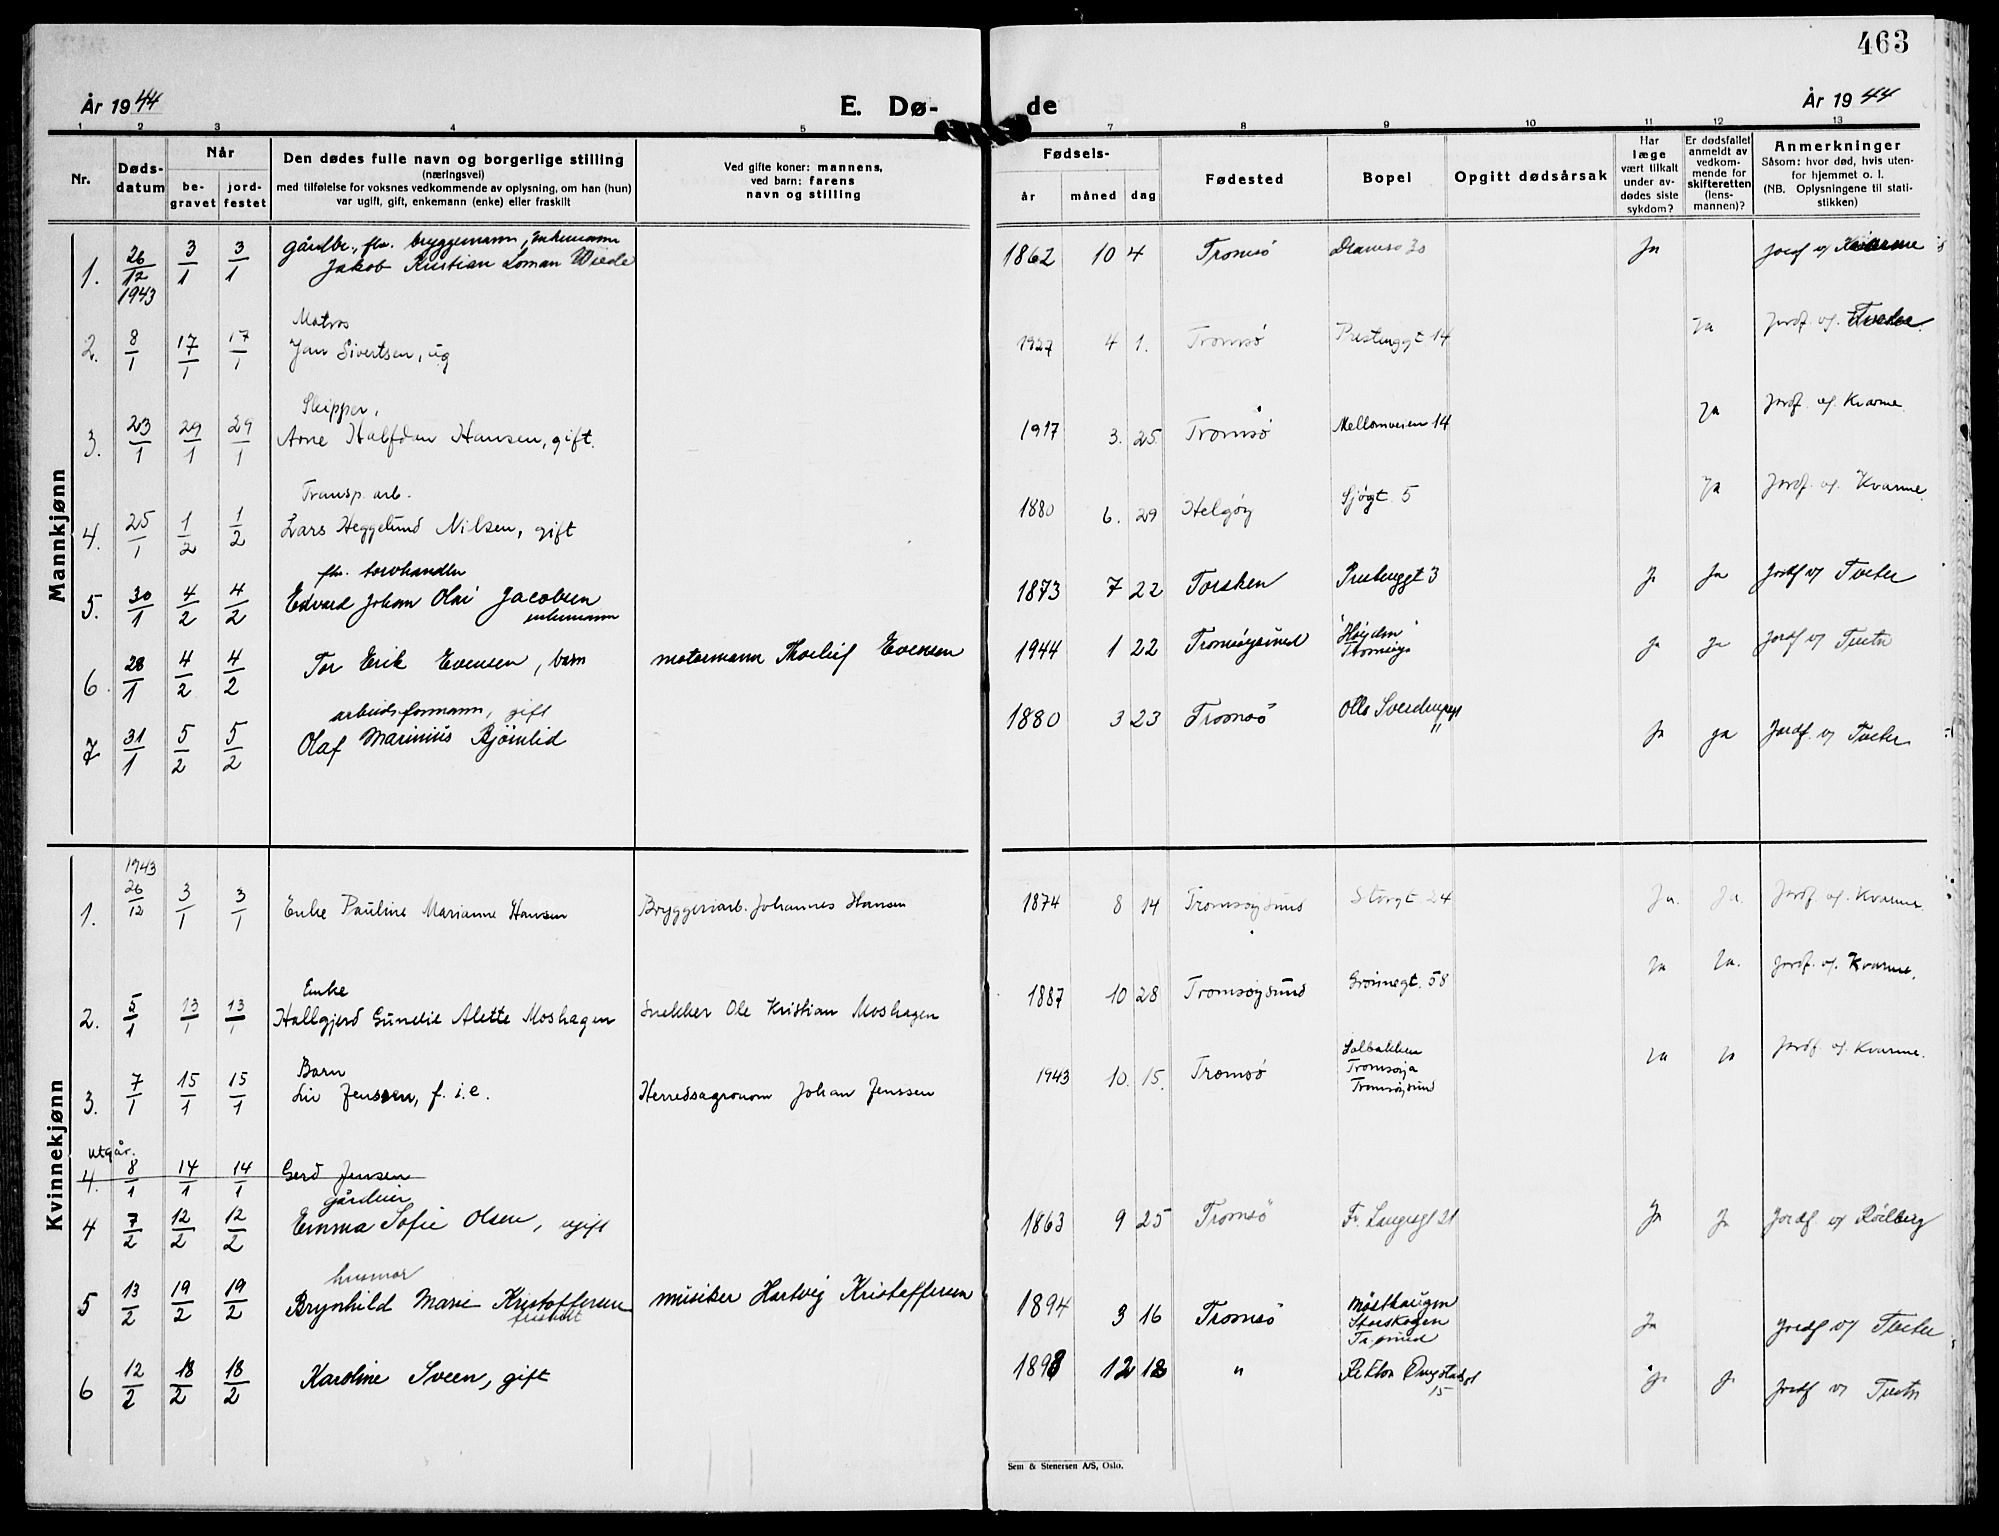 463
År 1944 E. Dø- de År 1944
1 2 3 4 5 7 8 9 10 11 12 13
Nr.
Døds-
datum
Når
be-
gravet
jord-
festet
Den dødes fulle navn og borgerlige stilling
(næringsvei)
med tilføielse for voksnes vedkommende av oplysning, om han (hun)
var ugift, gift, enkemann (enke) eller fraskilt
Ved gifte koner: mannens,
ved barn: farens
navn og stilling
Fødsels-
år måned dag
Fødested
Bopel
Opgitt dødsårsak
Har
læge
vært tilkalt
under av-
dødes siste
sykdom?
Er dødsfallet
anmeldt av
vedkom-
mende for
skifteretten
(lens-
mannen)?
Anmerkninger
Såsom: hvor død, hvis uten-
for hjemmet o. l.
(NB. Oplysningene til stati-
stikken)
Mannkjønn
gårdbr., fhv. bryggemann, enkemann
1. 26/12 1943 3/1 3/1 Jakob Kristian Loman Wiede 1862 10 4 Tromsø Dramsv 30 Ja Jordf af Kvarme
Matros
2. 8/1 17/1 17/1 Jan Sivertsen, ug 1927 4 1. Tromsø Prestenggt 14 Ja Jordf. af. Tveter.
Skipper,
3. 23/1 29/1 29/1 Arne Halfdan Hansen, gift. 1917 3. 25 Tromsø Mellomveien 14 Ja Jordf. af. Kvarme.
Transp. arb.
4. 25/1 1/2 1/2 Lars Heggelund Nilsen, gift 1880 6. 29 Helgøy Sjøgt. 5 Ja Jordf. af. Kvarme.
fhv. torvhandler
5. 30/1 4/2 4/2 Edvard Johan Olai Jacobsen 1873 7 22 Torsken Prestenggt 3 Ja Ja Jordf af Tveter
enkemann
6 28/1 4/2 4/2 Tor Erik Evensen, barn motormann Thorleif Evensen 1944 1 22 Tromsøysund "Høyden" Tromsøya Ja Ja Jordf af Tveter
arbeidsformann, gift
7 31/1 5/2 5/2 Olaf Marinius Bjørnlid 1880 3 23 Tromsø Otto Sverdrupsgt 11 Ja ja Jordf. af Tveter.
Kvinnekjønn
1. 1943 26/12 3/1 3/1 Enke Pauline Marianne Hansen Bryggeriarb. Johannes Hansen 1874 8 14 Tromsøysund Storgt. 24 Ja. Ja. Jordf. af. Kvarme.
Enke
2. 5/1 13/1 13/1 Hallgjerd Gunelie Alette Moshagen Snekker Ole Kristian Moshagen 1887 10 28 Tromsøysund Grønnegt. 58 Ja Ja. Jordf. af. Kvarme.
Barn
3. 7/1 15/1 15/1 Liv Jenssen, f. i. e. Herredsagronom Johan Jenssen 1943 10. 15. Tromsø Solbakken Tromsøya Tromsøysund Ja Ja Jordf. af. Kvarme.
utgår.
4. 8/1 14/1 14/1 Gerd Jensen
gårdeier
4 7/2 12/2 12/2 Emma Sofie Olsen, ugift 1863 9 25 Tromsø Fr. Langesgt 21 Ja Ja Jordf af
husmor
5 13/2 19/2 19/2 Brynhild Marie Kristoffersen musiker Hartvig Kristoffersen 1894 3 16 Tromsø Storskogen Tr. sund Ja jordf af Tveter
fraskilt
6 12/2 18/2 18/2 Karoline Sveen, gift 1898 12 18 " Rektor Qvigstadsgt 15 ja ja Jordf af Tveter
Sem & Stenersen A/S, Oslo.